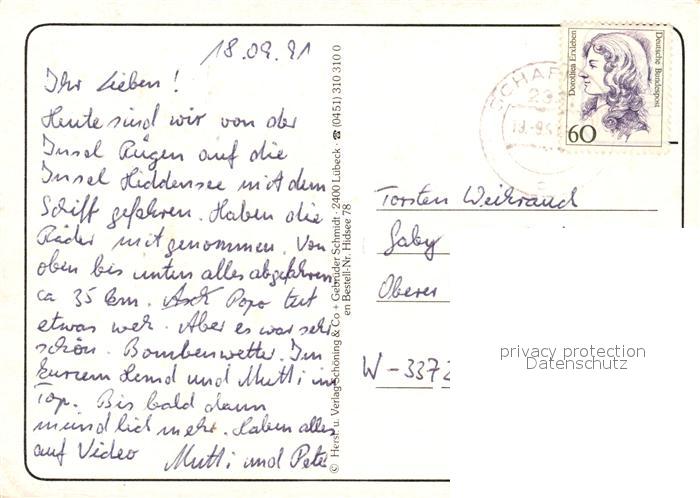 18.09.91
Ihr Lieben!
Heute sind wir von der
Insel Rügen auf die
Insel Hiddensee mit dem
Schiff gefahren. Haben die
Räder mitgenommen. Von
oben bis unten alles abgefahren
ca 35 km. Popo tut
etwas weh. Aber es war sehr
schön. Bombenwetter. Im
kurzem Hemd und Mutti im
Top. Bis bald dann
mündlich mehr. Haben alles
auf Video
Mutti und Peter
© Herst. u. Verlag Schöning & Co + Gebrüder Schmidt · 2400 Lübeck · ☎ (0451) 310 310 0
en Bestell-Nr. Hidsee 78
Dorothea Erxleben
Deutsche Bundespost
60
SCHAPR
19.-9.9
Torsten Weihrauch
Gaby
Oberer
W-3372
privacy protection
Datenschutz